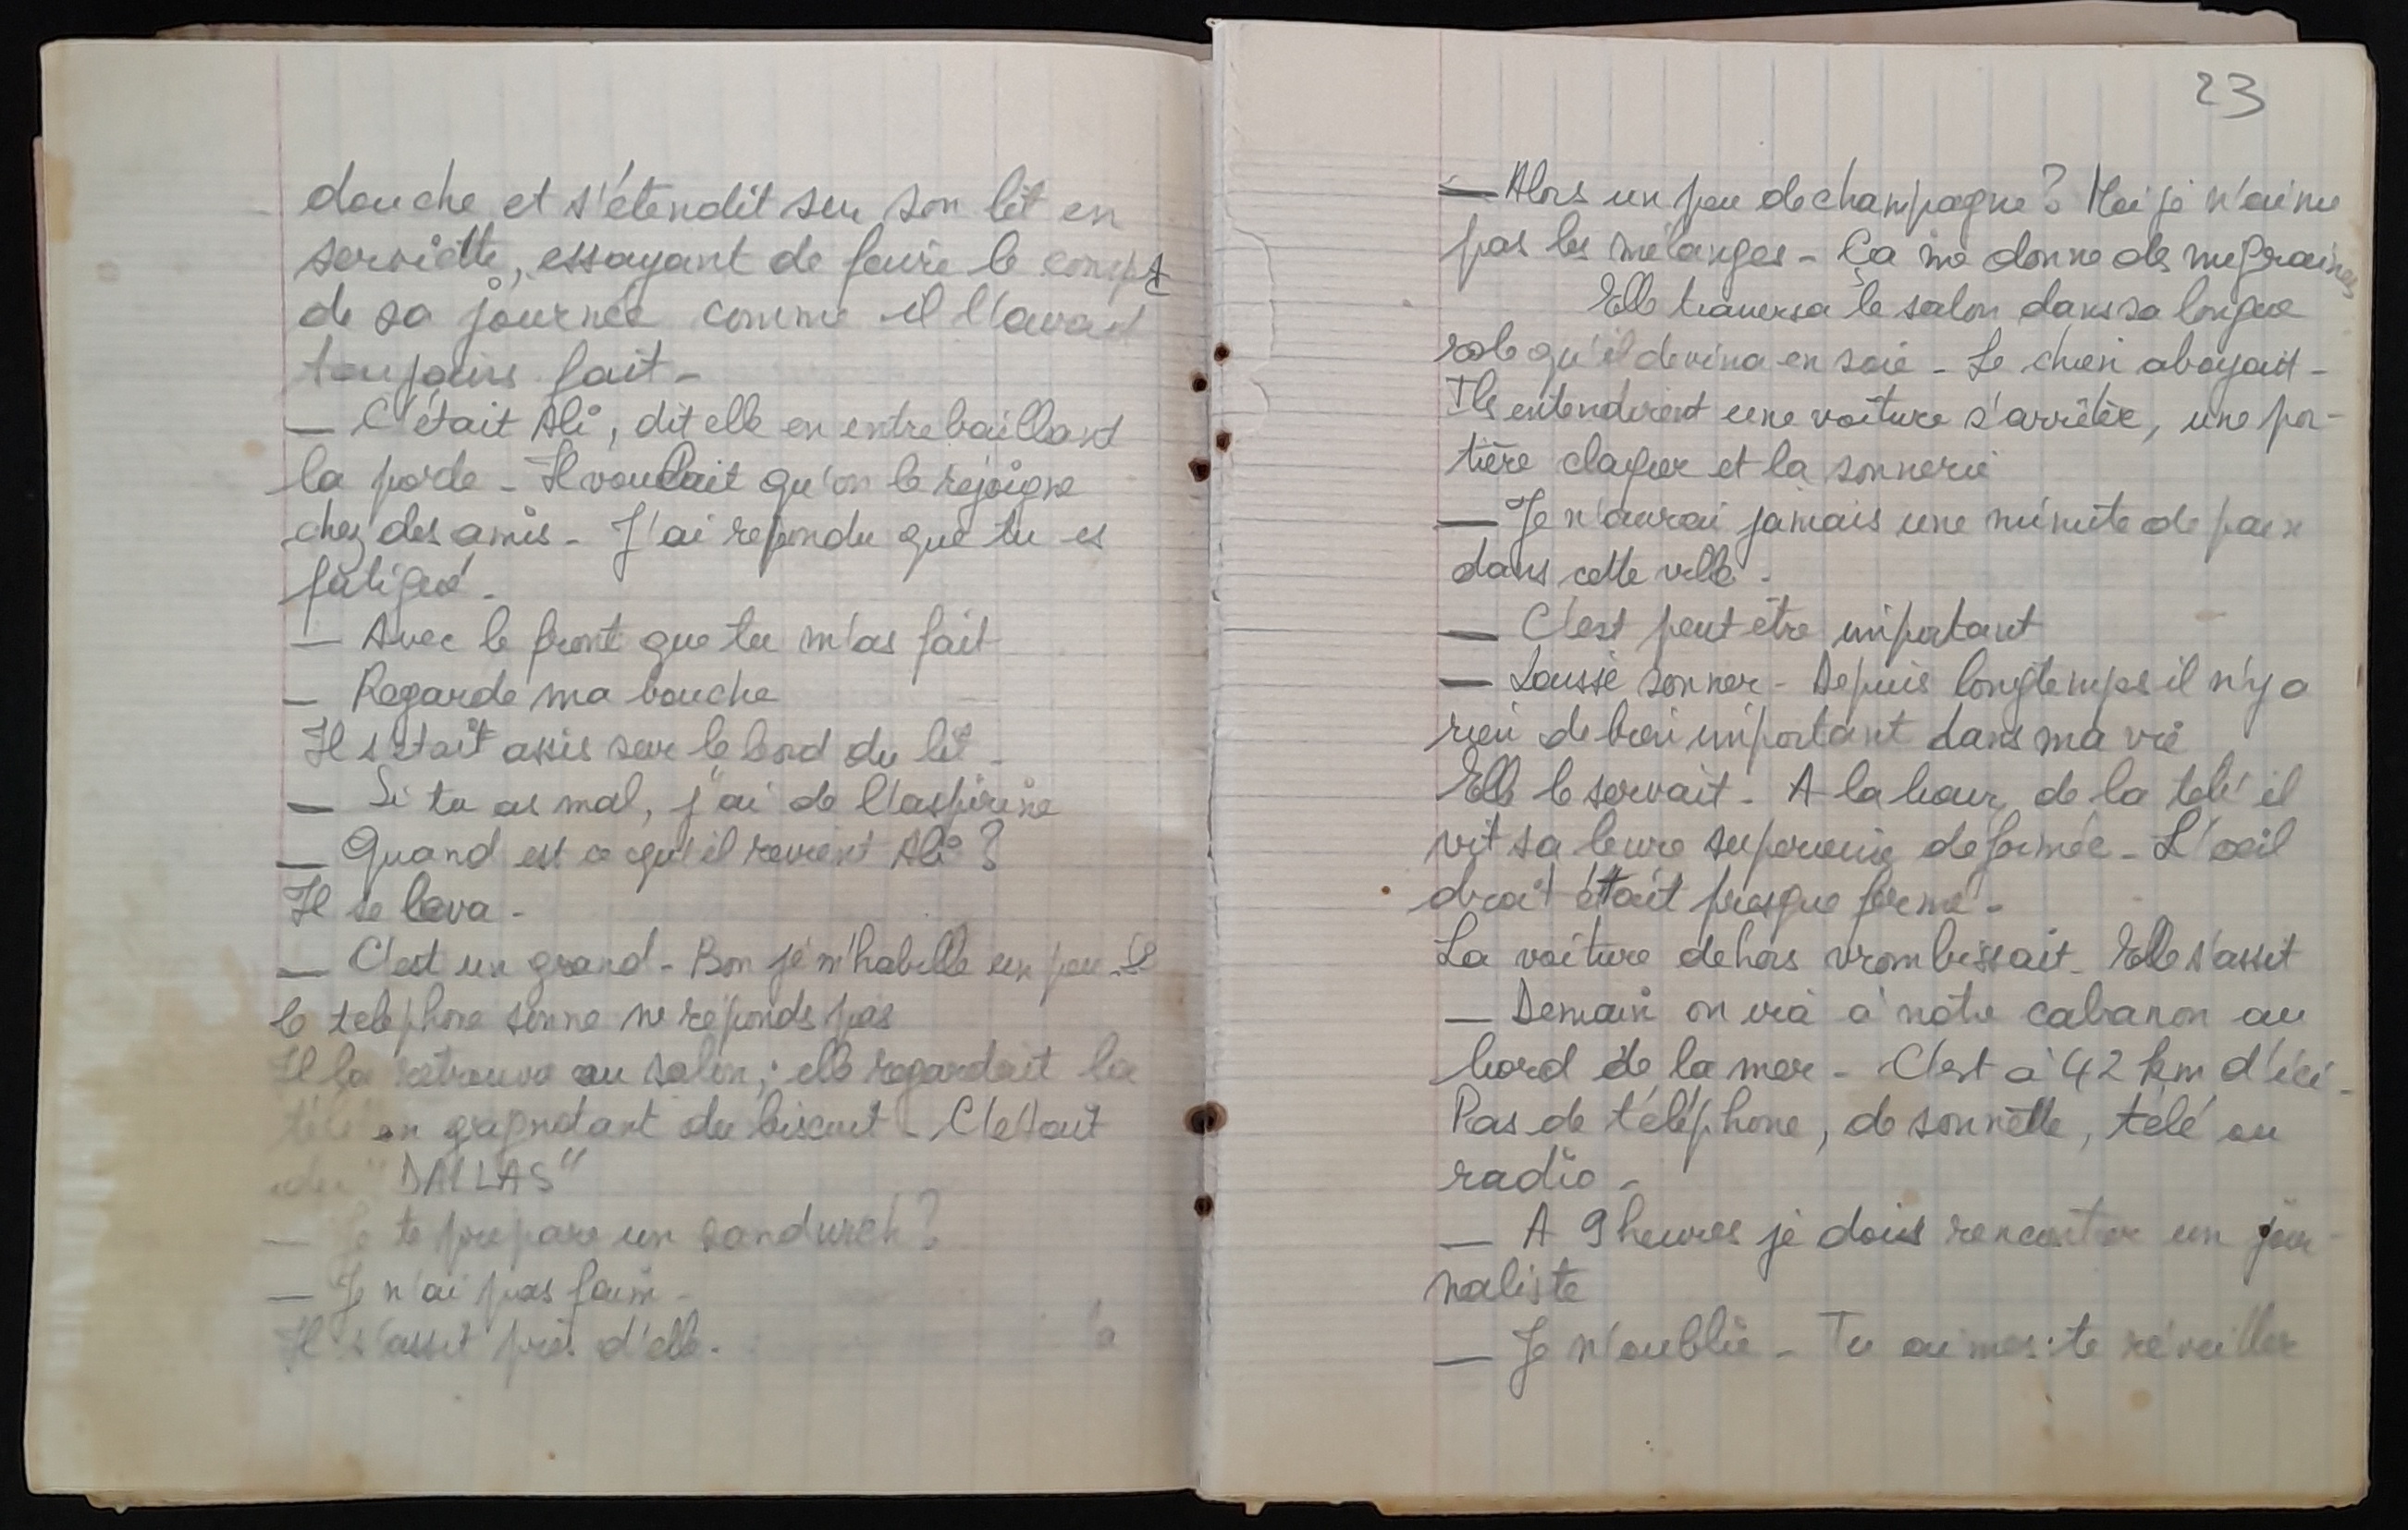 douche et s'étendit sur son lit en
serviette, essayant de faire le compt
de sa journée comme il l'avait
toujours fait -
— C'était Ali, dit elle en entrebaillant
la porte - Il voulait qu'on le rejoigne
chez des amis - J'ai repondu que tu es
fatigué -
— Avec le front que tu m'as fait
— Regarde ma bouche
Il s'etait assis sur le bord du lit -
— Si tu as mal, j'ai de l'aspirine
— Quand est ce qu'il revient Ali ?
Il se leva -
— C'est un grand - Bon je m'habille un peu. Si
le telephone sonne ne réponds pas
Il la retrouva au salon ; elle regardait la
télé en grignotant du biscuit - C'etait
du "DALLAS"
— Je te prepare un sandwich ?
— Je n'ai pas faim -
Il s'assit près d'elle.
23
— Alors un peu de champagne ? Moi je n'aime
pas les mélanges - Ça me donne des migraines
Elle traversa le salon dans sa longue
robe qu'il devina en soie - Le chien aboyait -
Ils entendirent une voiture s'arrêter, une por-
tière claquer et la sonnerie
— Je n'aurai jamais une minute de paix
dans cette ville -
— C'est peut être important
— Laisse sonner - Depuis longtemps il n'y a
rien de bien important dans ma vie
Elle le servait - A la lueur de la télé il
vit sa levre superieure deformée - L'oeil
droit était presque fermé -
La voiture dehors vrombissait - Elle s'assit
— Demain on ira à notre cabanon au
bord de la mer - C'est à 42 km d'ici -
Pas de téléphone, de sonnette, télé ou
radio -
— A 9 heures je dois rencontrer un jour-
naliste
— Je n'oublie - Tu aimes te réveiller